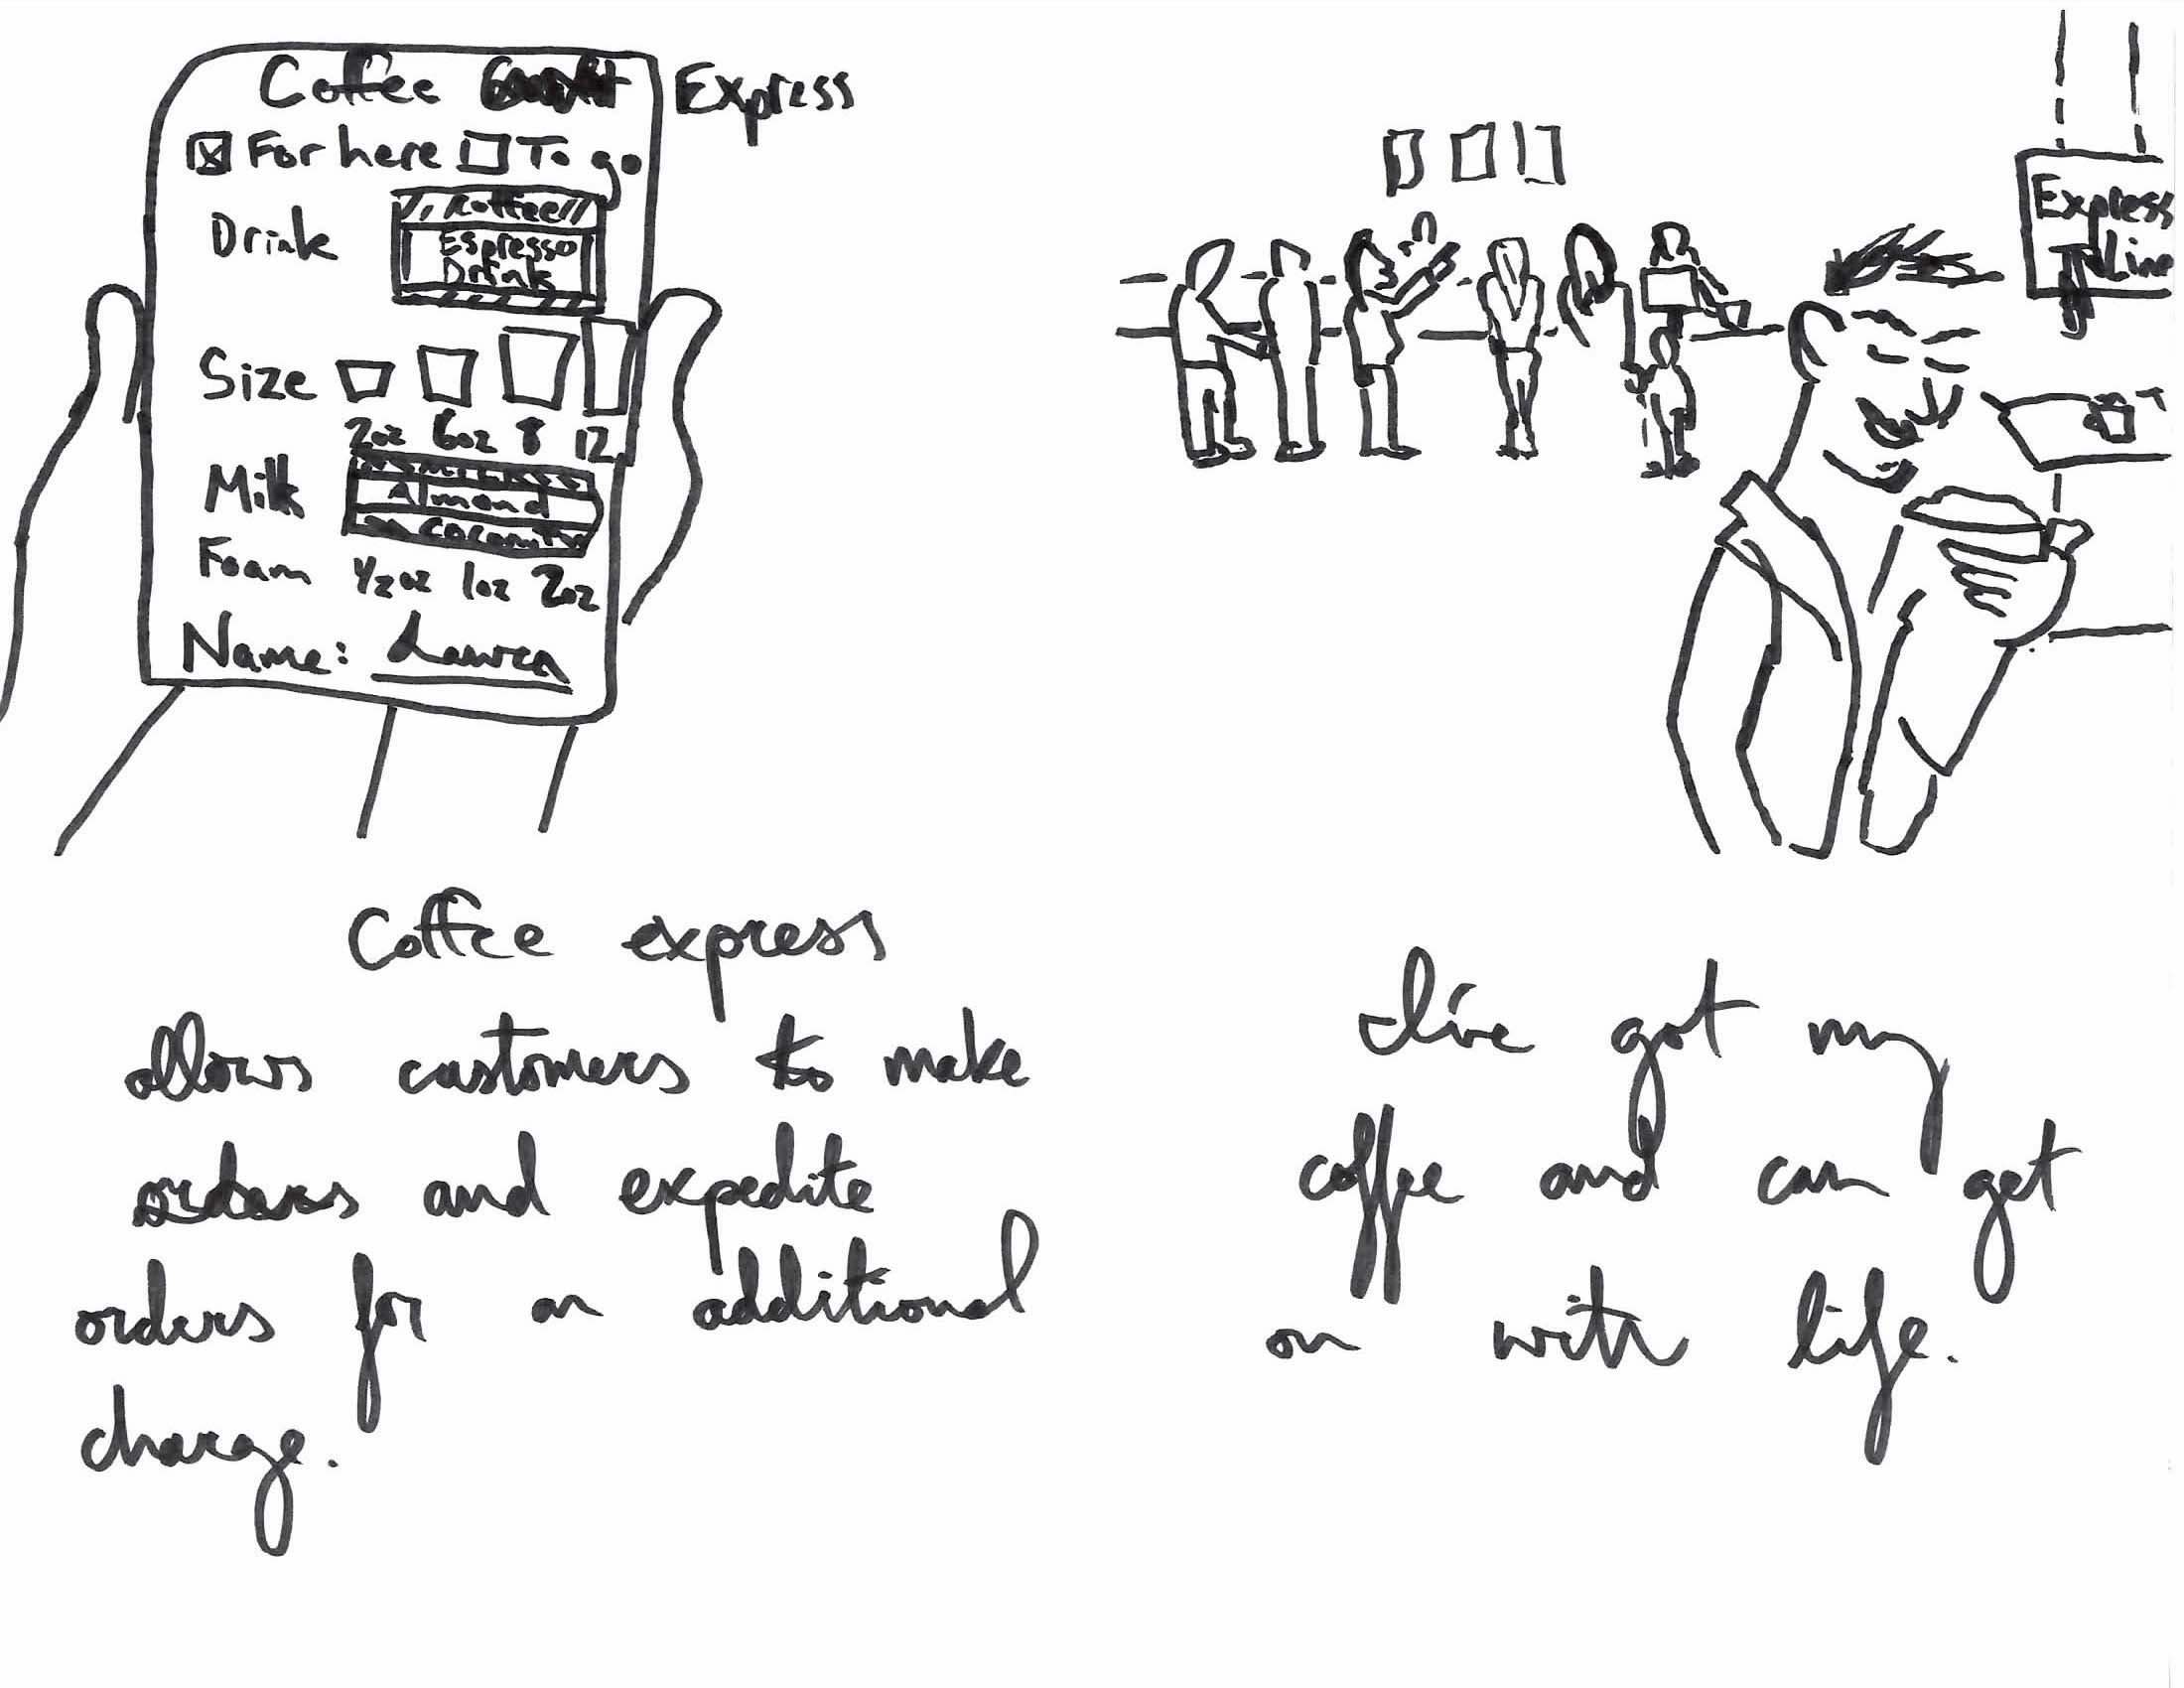 Coffee Express
For here To go
Drink
Coffee
Espresso
Drink
Size
2oz 6oz 8 12
Milk
Almond
Coconut
Foam 1/2oz 1oz 2oz
Name: Lauren
Express
Line
Coffee express
allows customers to make
orders and expedite
orders for an additional
charge.
I've got my
coffee and can get
on with life.